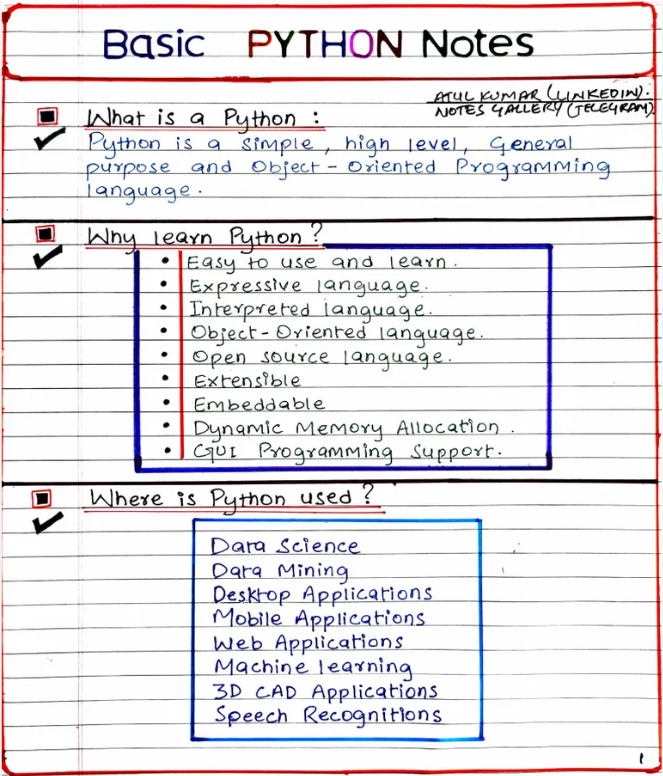 Basic PYTHON Notes
ATUL KUMAR (LINKEDIN).
NOTES GALLERY (TELEGRAM)
What is a Python :
Python is a simple, high level, General
purpose and Object-Oriented Programming
language.
Why learn Python?
• Easy to use and learn.
• Expressive language.
• Interpreted language.
• Object-Oriented language.
• Open source language.
• Extensible
• Embeddable
• Dynamic Memory Allocation.
• GUI Programming Support.
Where is Python used?
Data Science
Data Mining
Desktop Applications
Mobile Applications
Web Applications
Machine learning
3D CAD Applications
Speech Recognitions
1